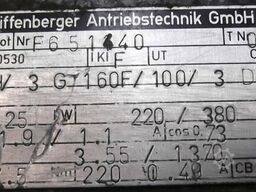 iffenberger Antriebstechnik GmbH
ot Nr F651640 T N0
0530 IKl F UT
V 3 GT160F/100/3 D
25 kW 220/380
1.9/1.1 A cos 0.73
3.55/1370
.5 N 220 0.40 A CB